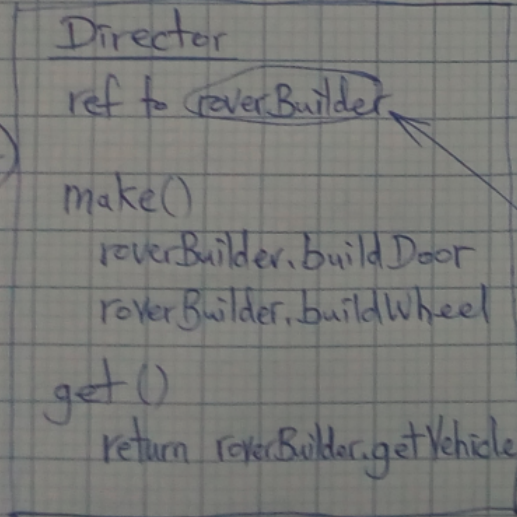 Director
ref to roverBuilder
make()
roverBuilder.buildDoor
roverBuilder.buildWheel
get()
return roverBuilder.getVehicle